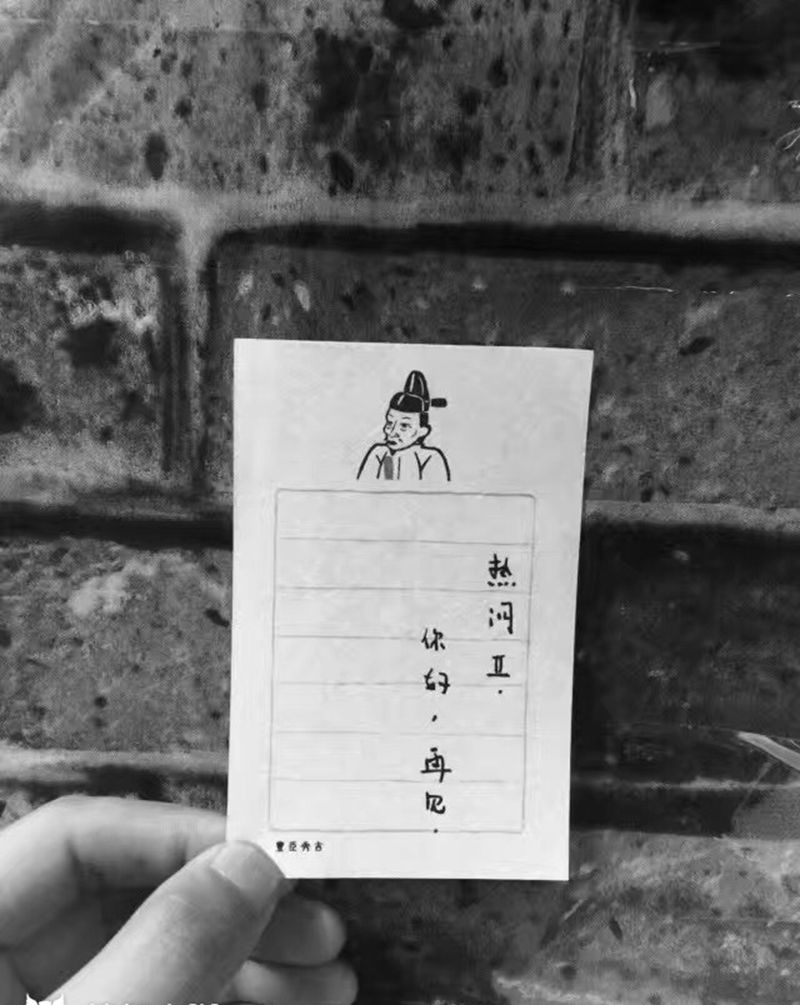 热河Ⅱ.
你好，再见.
豊臣秀吉